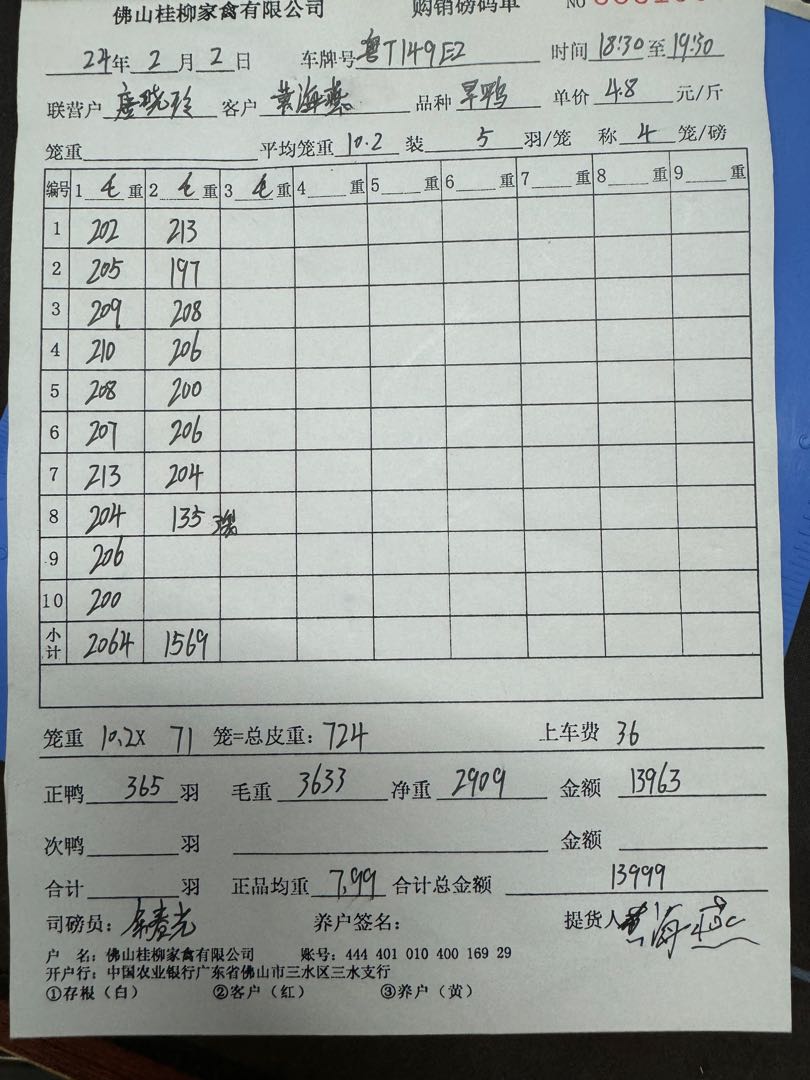 佛山桂柳家禽有限公司 购销磅码单 NO
24年 2 月 2 日 车牌号 粤T149E2 时间 18:30 至 19:30
联营户 唐晓玲 客户 黄海燕 品种 旱鸭 单价 4.8 元/斤
笼重 平均笼重 10.2 装 5 羽/笼 称 4 笼/磅
编号 1 毛 重 2 毛 重 3 毛 重 4 重 5 重 6 重 7 重 8 重 9 重
1 202 213
2 205 197
3 209 208
4 210 206
5 208 200
6 207 206
7 213 204
8 204 135
9 206
10 200
小计 2064 1569
笼重 10.2X 71 笼=总皮重: 724 上车费 36
正鸭 365 羽 毛重 3633 净重 2909 金额 13963
次鸭 羽 金额
合计 羽 正品均重 7.99 合计总金额 13999
司磅员: 养户签名: 提货人 黄海燕
户 名: 佛山桂柳家禽有限公司 账号: 444 401 010 400 169 29
开户行: 中国农业银行广东省佛山市三水区三水支行
①存根(白) ②客户(红) ③养户(黄)